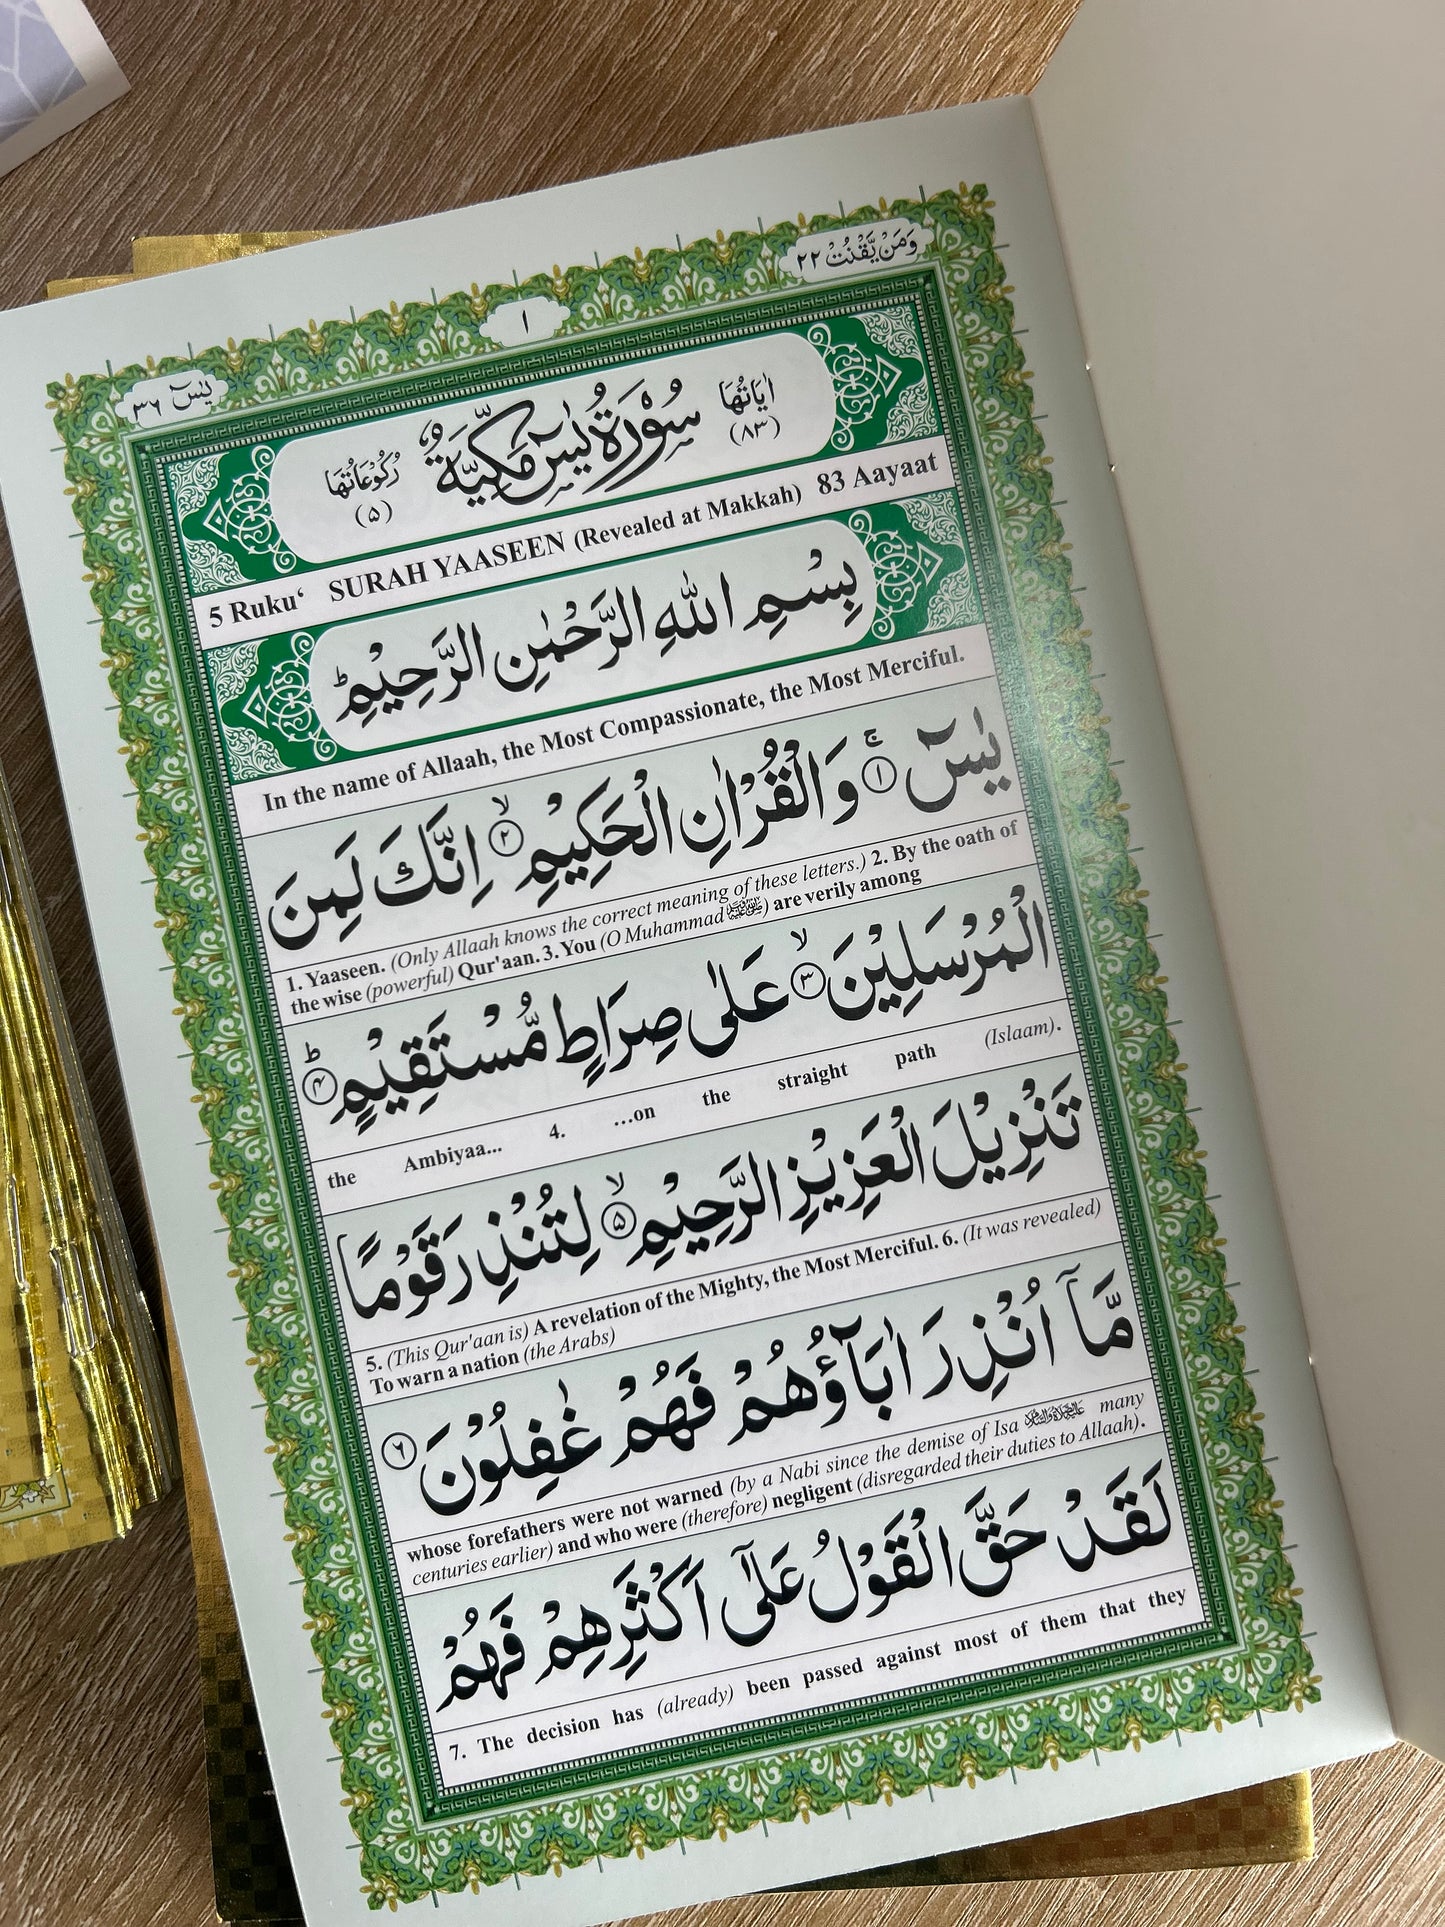 وَمَنْ يَّقْنُتْ ٢٢
١
يٰسٓ ٣٦
اٰيَاتُهَا (٨٣) سُوْرَةُ يٰسٓ مَكِّيَّةٌ رُكُوْعَاتُهَا (٥)
5 Ruku‘ SURAH YAASEEN (Revealed at Makkah) 83 Aayaat
بِسْمِ اللّٰهِ الرَّحْمٰنِ الرَّحِيْمِ ؕ
In the name of Allaah, the Most Compassionate, the Most Merciful.
يٰسٓ ۚ ﴿١﴾ وَالْقُرْاٰنِ الْحَكِيْمِ ۙ ﴿٢﴾ اِنَّكَ لَمِنَ
1. Yaaseen. (Only Allaah knows the correct meaning of these letters.) 2. By the oath of
the wise (powerful) Qur'aan. 3. You (O Muhammad ﷺ) are verily among
الْمُرْسَلِيْنَ ۙ ﴿٣﴾ عَلٰى صِرَاطٍ مُّسْتَقِيْمٍ ؕ ﴿٤﴾
the Ambiyaa... 4. ...on the straight path (Islaam).
تَنْزِيْلَ الْعَزِيْزِ الرَّحِيْمِ ۙ ﴿٥﴾ لِتُنْذِرَ قَوْمًا
5. (This Qur'aan is) A revelation of the Mighty, the Most Merciful. 6. (It was revealed)
To warn a nation (the Arabs)
مَّآ اُنْذِرَ اٰبَآؤُهُمْ فَهُمْ غٰفِلُوْنَ ﴿٦﴾
whose forefathers were not warned (by a Nabi since the demise of Isa عليه الصلاة والسلام many
centuries earlier) and who were (therefore) negligent (disregarded their duties to Allaah).
لَقَدْ حَقَّ الْقَوْلُ عَلٰٓى اَكْثَرِهِمْ فَهُمْ
7. The decision has (already) been passed against most of them that they